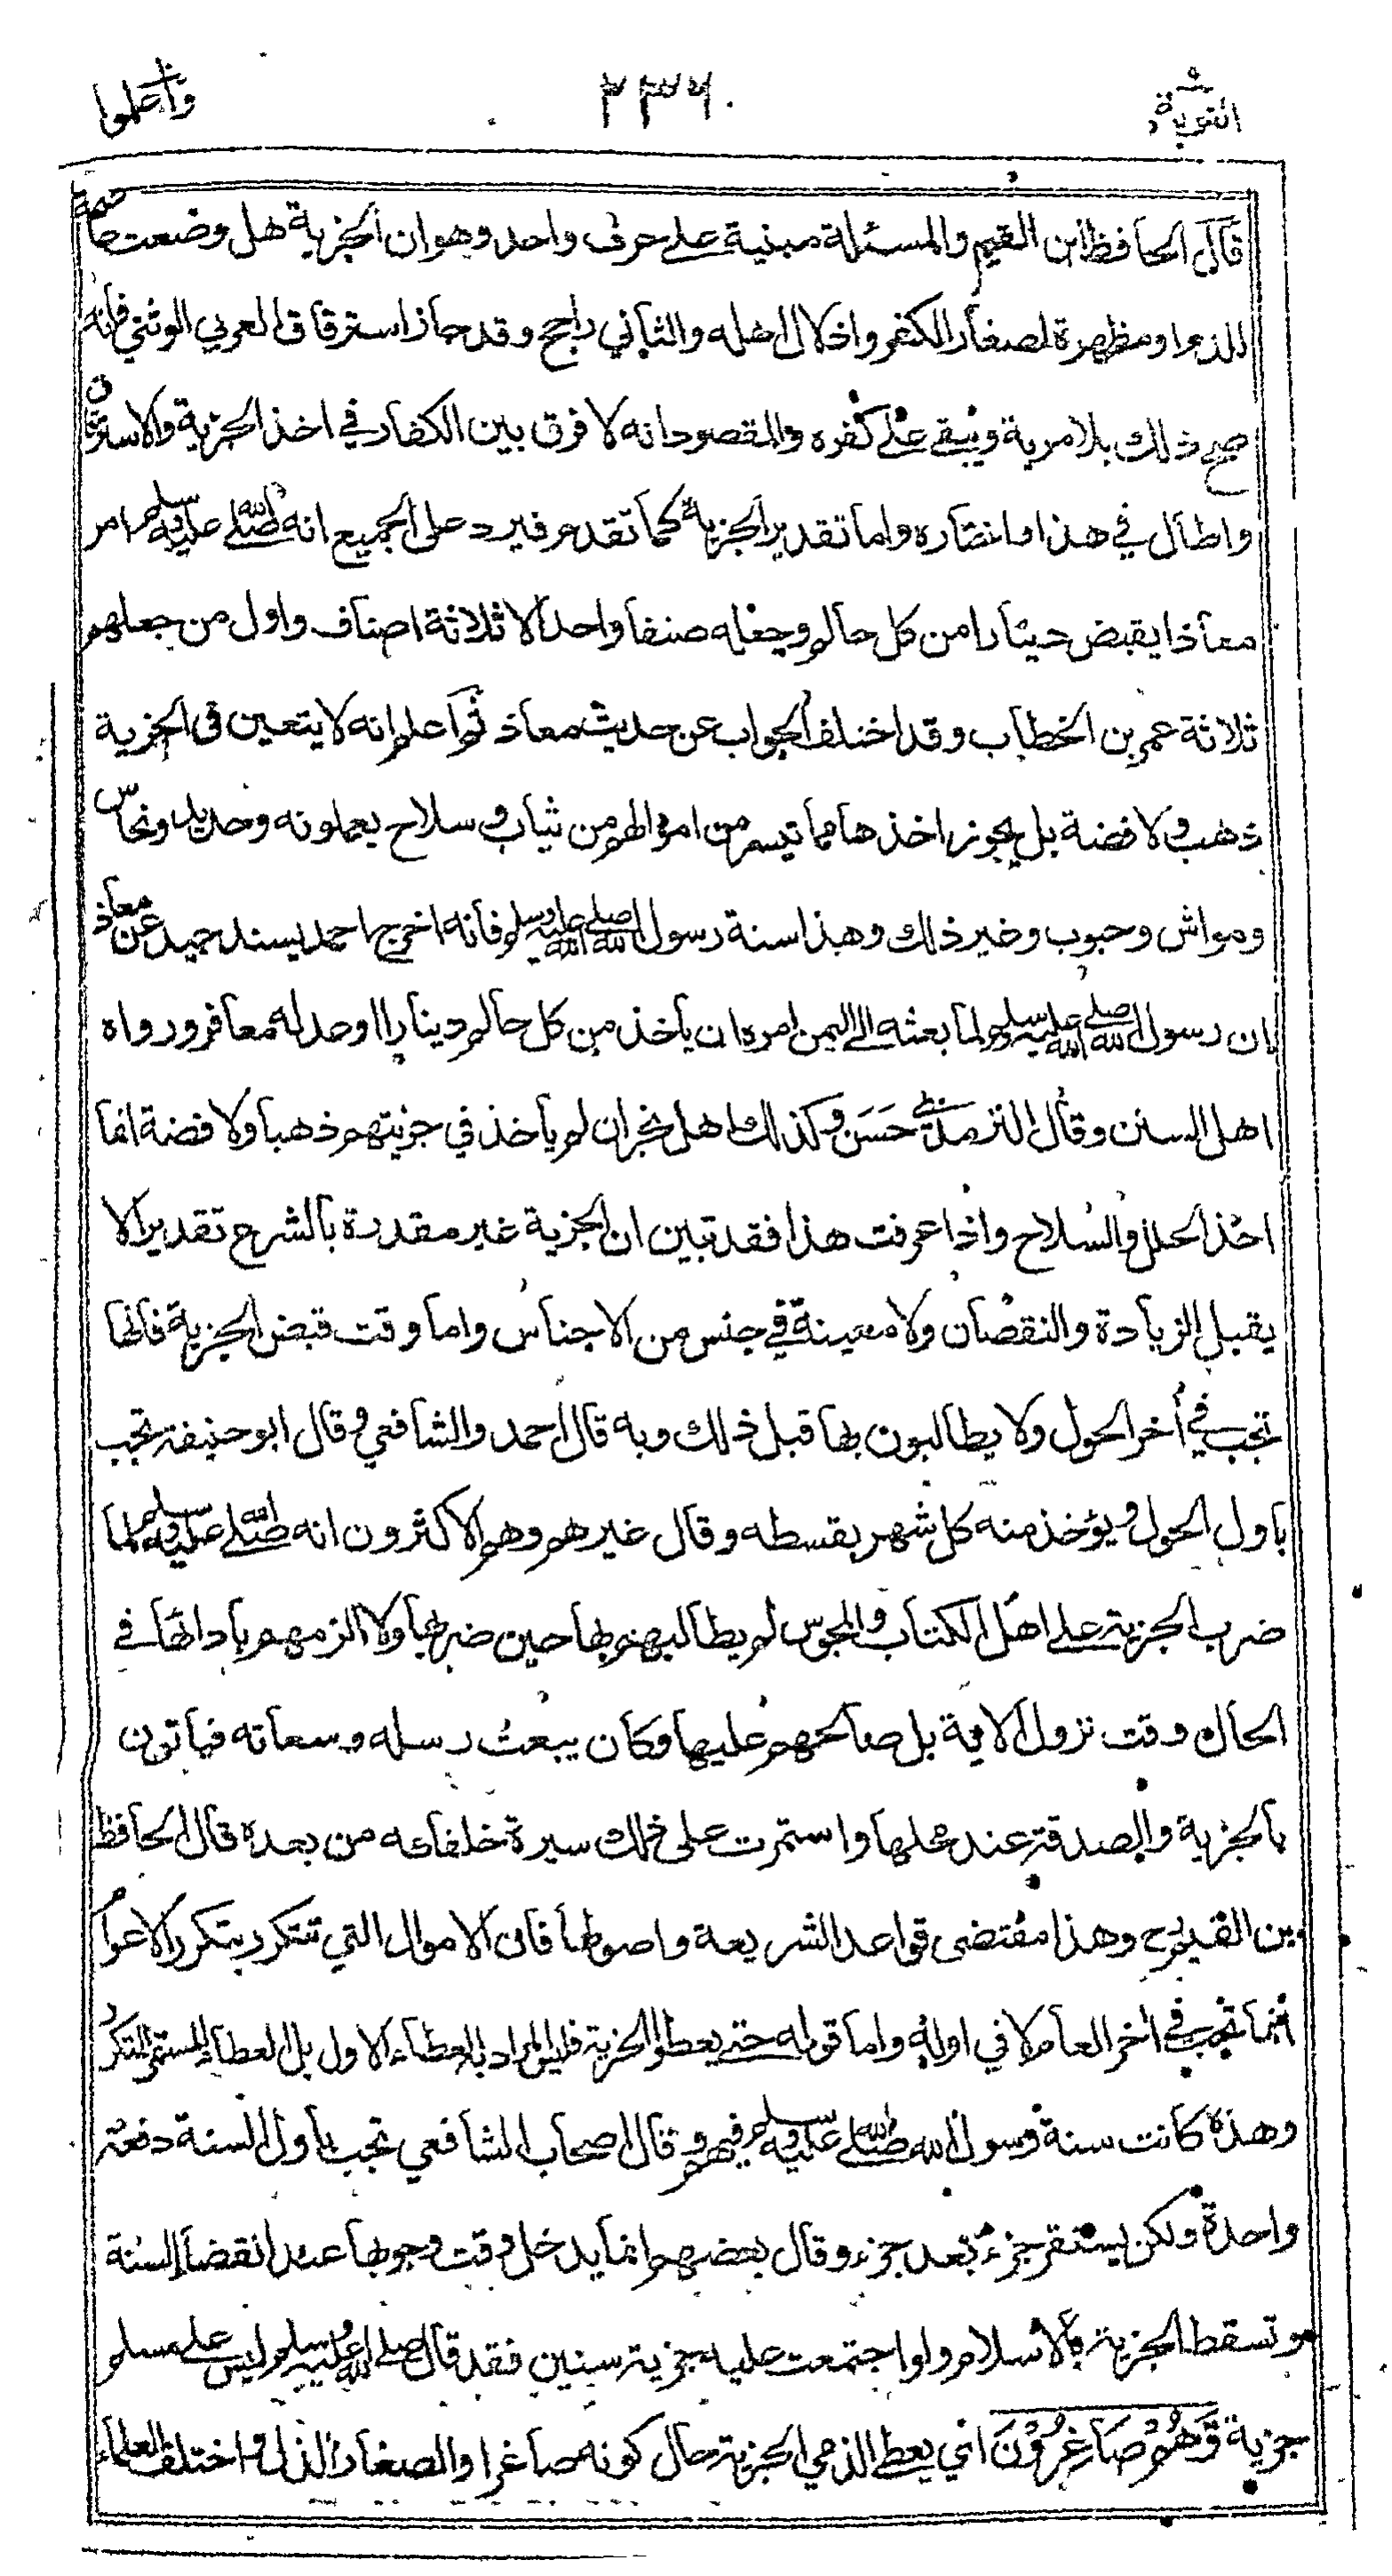 التوبة ٩ ٢٣٦ واعلموا
قال الحافظ ابن القيم والمسئلة مبنية على حرف واحد وهو ان الجزية هل وضعت عاصمة
للدم او مظهرة لصغار الكفر واذلال اهله والثاني راجح وقد جاز استرقاق العربي الوثني فانه
صح ذلك بلا مرية ويبقى على كفره والمقصود انه لا فرق بين الكفار في اخذ الجزية والاسترقاق
واطال في هذا واختاره واما تقدير الجزية كما تقدم فيرد على الجميع انه صلى الله عليه وسلم امر
معاذا يقبض دينارا من كل حالم وجعله صنفا واحدا لا ثلاثة اصناف واول من جعلهم
ثلاثة عمر بن الخطاب وقد اختلف الجواب عن حديث معاذ ثم اعلم انه لا يتعين في الجزية
ذهب ولا فضة بل يجوز اخذها مما تيسر من اموالهم من ثياب وسلاح يعملونه وحديد ونحاس
ومواش وحبوب وغير ذلك وهذا سنة رسول الله صلى الله عليه وسلم فانه اخرج احمد بسند جيد عن معاذ
ان رسول الله صلى الله عليه وسلم لما بعثه الى اليمن امره ان يأخذ من كل حالم دينارا او عدله معافر ورواه
اهل السنن وقال الترمذي حسن وكذلك اهل نجران لم يأخذ في جزيتهم ذهبا ولا فضة انما
اخذ الحلل والسلاح واذا عرفت هذا فقد تبين ان الجزية غير مقدرة بالشرع تقديرا لا
يقبل الزيادة والنقصان ولا معينة في جنس من الاجناس واما وقت قبض الجزية فانها
تجب في أخر الحول ولا يطالبون بها قبل ذلك وبه قال احمد والشافعي وقال ابو حنيفة تجب
باول الحول ويؤخذ منه كل شهر بقسطه وقال غيرهم وهم الاكثرون انه صلى الله عليه وسلم لما
ضرب الجزية على اهل الكتاب والمجوس لم يطالبهم بها حين ضربها ولا الزمهم بادائها في
الحال وقت نزول الاية بل صالحهم عليها وكان يبعث رسله وسعاته فياتون
بالجزية والصدقة عند محلها واستمرت على ذلك سيرة خلفائه من بعده قال الحافظ
بن القيم رح وهذا مقتضى قواعد الشريعة واصولها فان الاموال التي تتكرر بتكرر الاعوام
انما تجب في اخر العام لا في اوله واما قوله حتى يعطوا الجزية فليس المراد بالعطاء الاول بل العطاء المستمر المتكرر
وهذه كانت سنة رسول الله صلى الله عليه وسلم فيهم وقال اصحاب الشافعي تجب باول السنة دفعة
واحدة ولكن يستقر جزء بعد جزء وقال بعضهم انما يدخل وقت وجوبها عند انقضاء السنة
وتسقط الجزية بالاسلام ولو اجتمعت عليه جزية سنين فقد قال صلى الله عليه وسلم ليس على مسلم
جزية وَّهُمْ صَاغِرُوْنَ اي يعطي الذمي الجزية حال كونه صاغرا والصغار الذل واختلف العلماء